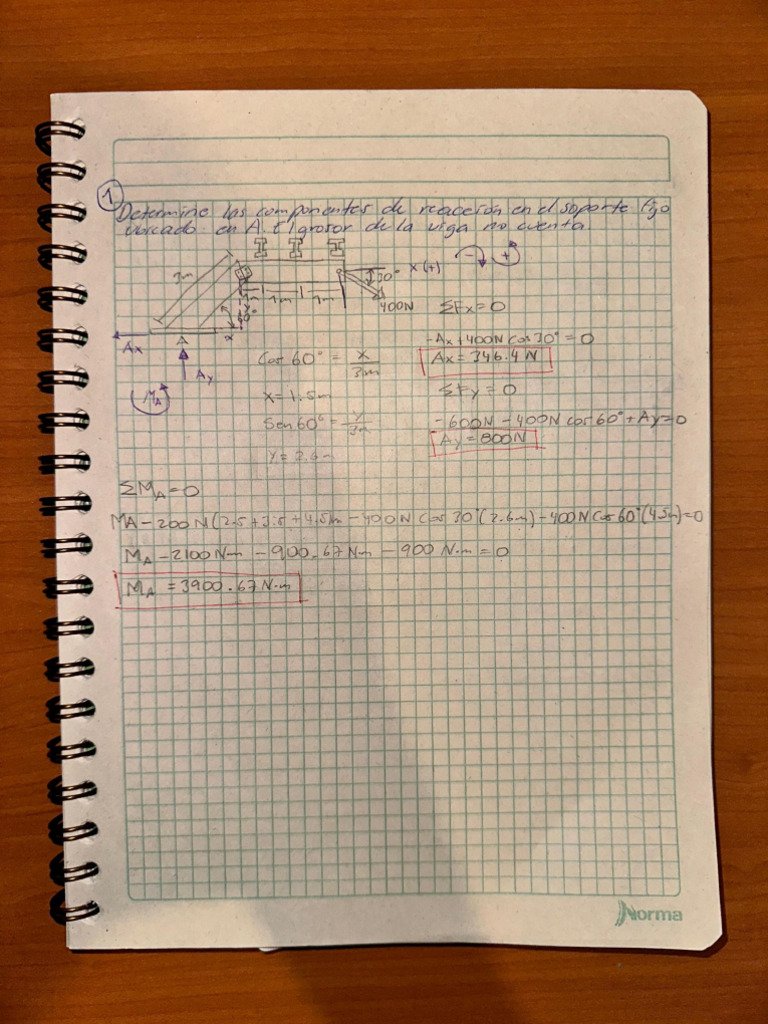 1
Determine las componentes de reacción en el soporte fijo
ubicado en A. El grosor de la viga no cuenta.
3m
60°
1m
1m
30°
400N
x(+)
- +
Ax
A
x
Ay
MA
Cos 60° = x/3m
x = 1.5m
Sen 60° = y/3m
y = 2.6m
ΣFx = 0
-Ax + 400N cos 30° = 0
Ax = 346.4 N
ΣFy = 0
-600N - 400N cos 60° + Ay = 0
Ay = 800N
ΣMA = 0
MA - 200N (2.5 + 3.5 + 4.5)m - 400N Cos 30° (2.6m) - 400N Cos 60° (4.5m) = 0
MA - 2100 N·m - 900.67 N·m - 900 N·m = 0
MA = 3900.67 N·m
Norma